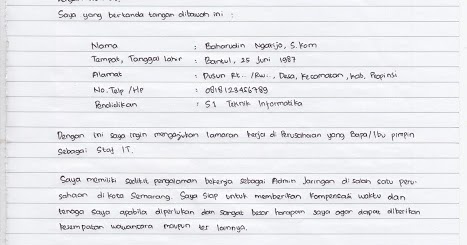 Saya yang bertanda tangan dibawah ini :
Nama : Baharudin Ngarijo, S.Kom
Tempat, Tanggal lahir : Bantul, 25 Juni 1987
Alamat : Dusun Rt.. /Rw.., Desa, Kecamatan, Kab, Propinsi
No. Telp /HP : 0818123456789
Pendidikan : S1 Teknik Informatika
Dengan ini saya ingin mengajukan lamaran kerja di Perusahaan yang Bapa/Ibu pimpin
Sebagai Staf IT.
Saya memiliki sedikit pengalaman bekerja sebagai Admin Jaringan di salah satu peru-
sahaan di kota Semarang. Saya siap untuk memberikan kompensasi waktu dan
tenaga saya apabila diperlukan dan sangat besar harapan saya agar dapat diberikan
kesempatan wawancara maupun tes lainnya.